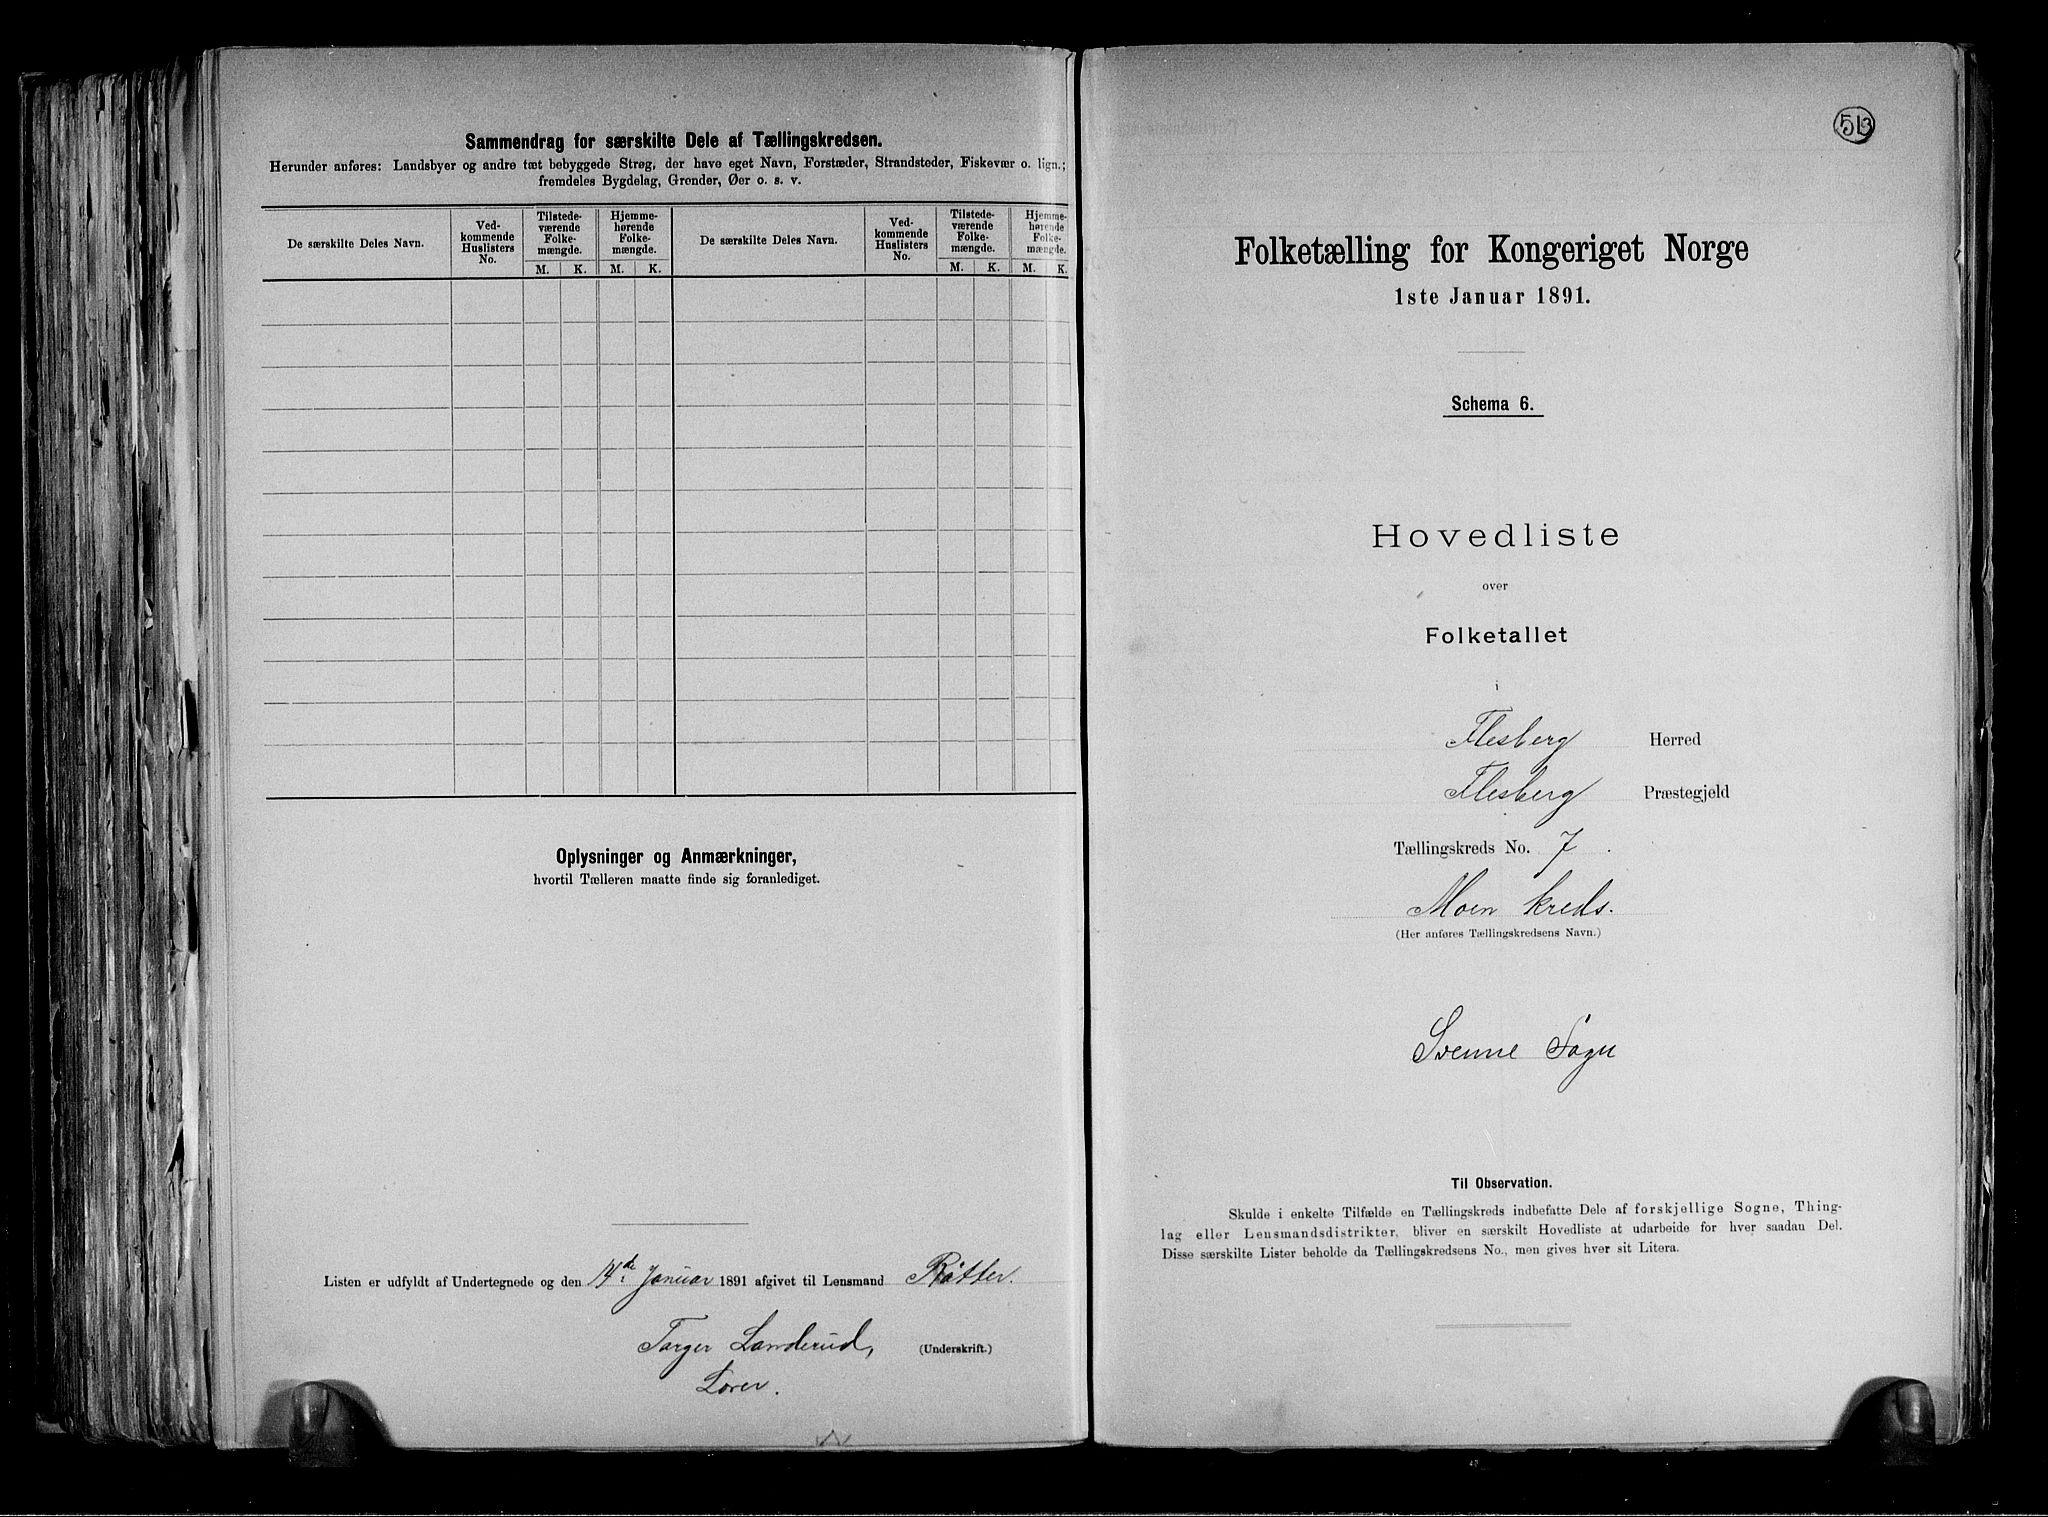 Sammendrag for særskilte Dele af Tællingskredsen.
Herunder anføres: Landsbyer og andre tæt bebyggede Strøg, der have eget Navn, Forstæder, Strandsteder, Fiskevær o. lign.;
fremdeles Bygdelag, Grender, Øer o. s. v.
De særskilte Deles Navn.
Ved-
kommende
Huslisters
No.
Tilstede-
værende
Folke-
mængde.
M. K.
Hjemme-
hørende
Folke-
mængde.
M. K.
De særskilte Deles Navn.
Ved-
kommende
Huslisters
No.
Tilstede-
værende
Folke-
mængde.
M. K.
Hjemme-
hørende
Folke-
mængde.
M. K.
Oplysninger og Anmærkninger,
hvortil Tælleren maatte finde sig foranlediget.
Listen er udfyldt af Undertegnede og den 14de Januar 1891 afgivet til Lensmand Råtter.
Torger Landerud, (Underskrift.)
Lærer.
513
Folketælling for Kongeriget Norge
1ste Januar 1891.
Schema 6.
Hovedliste
over
Folketallet
i
Flesberg Herred
Flesberg Præstegjeld
Tællingskreds No. 7.
Moen kreds.
(Her anføres Tællingskredsens Navn.)
Svenne Sogn
Til Observation.
Skulde i enkelte Tilfælde en Tællingskreds indbefatte Dele af forskjellige Sogne, Thing-
lag eller Lensmandsdistrikter, bliver en særskilt Hovedliste at udarbeide for hver saadan Del.
Disse særskilte Lister beholde da Tællingskredsens No., men gives hver sit Litera.